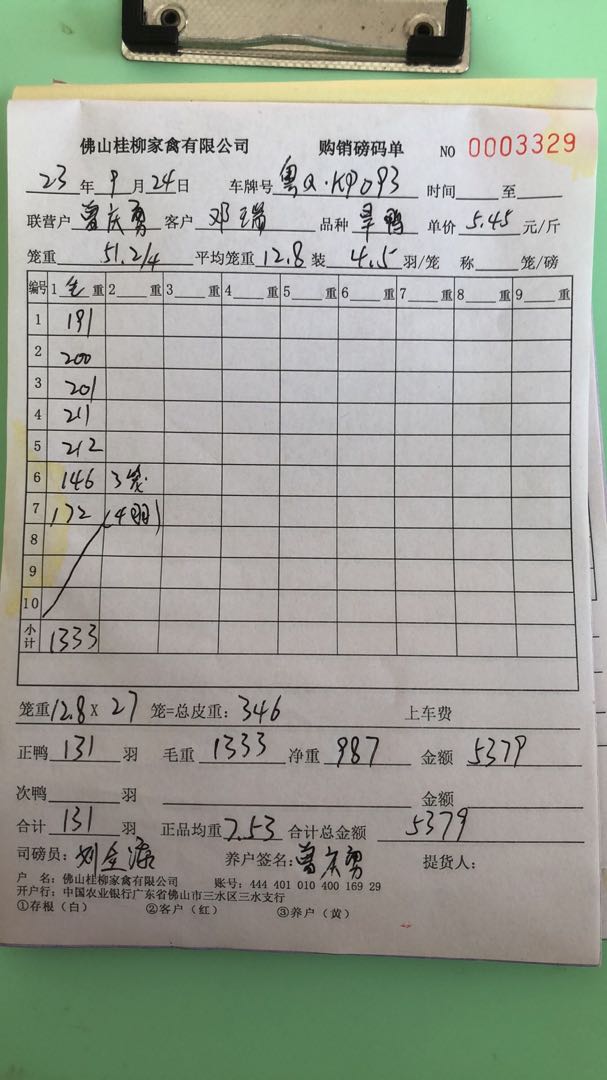 佛山桂柳家禽有限公司 购销磅码单 NO 0003329
23年9月24日 车牌号 粤Q·KP093 时间 至
联营户 曾庆勇 客户 邓瑞 品种 旱鸭 单价 5.45 元/斤
笼重 51.2/4 平均笼重 12.8 装 4.5 羽/笼 称 笼/磅
编号 1 毛 重 2 重 3 重 4 重 5 重 6 重 7 重 8 重 9 重
1 191
2 200
3 201
4 211
5 212
6 146 3笼
7 172 (4羽)
8
9
10
小计 1333
笼重 12.8 X 27 笼=总皮重: 346 上车费
正鸭 131 羽 毛重 1333 净重 987 金额 5379
次鸭 羽 金额
合计 131 羽 正品均重 7.53 合计总金额 5379
司磅员: 刘 养户签名: 曾庆勇 提货人:
户 名: 佛山桂柳家禽有限公司 账号: 444 401 010 400 169 29
开户行: 中国农业银行广东省佛山市三水区三水支行
①存根(白) ②客户(红) ③养户(黄)